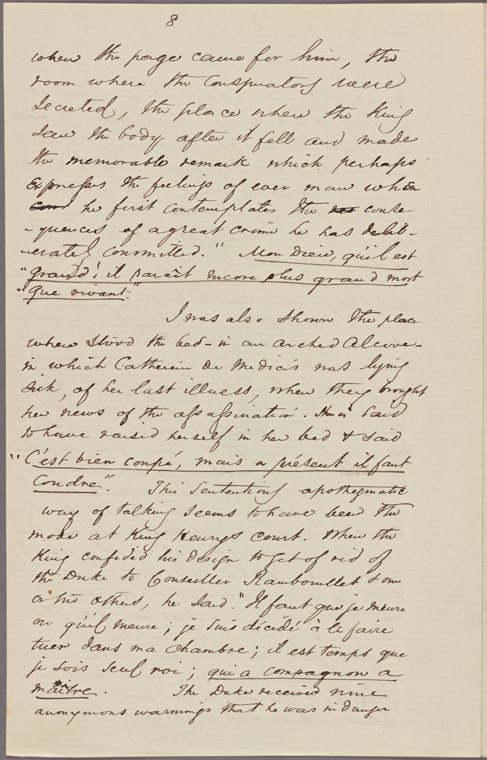 8
when the page came for him, the
room where the Conspirators were
Secreted, the place where the King
saw the body after it fell and made
the memorable remark which perhaps
Expresses the feelings of ever man when
he first contemplates the conse
-quences of a great crime he has delib-
-erately committed." Mon Dieu, qu'il est
"grand; il parait encore plus grand mort
"que vivant."
I was also shown the place
where stood the bed - in an arched Alcove -
in which Catherine de Medicis was lying
Sick, of her last illness, when they brought
her news of the assassination. She is said
to have raised herself in her bed & said
"C'est bien coupé, mais a présent il faut
Coudre". This Sententious apothegmatic
way of talking seems to have been the
mode at King Henrys court. When the
King confided his design to get of rid of
the Duke to Conseiller Rambouillet & one
or two others, he said. "Il faut que je meure
ou qu'il meure; je suis décidé à le faire
tuer dans ma chambre; il est temps que
je sois seul roi; qui a compagnon a
maitre. The Duke received nine
anonymous warnings that he was in danger